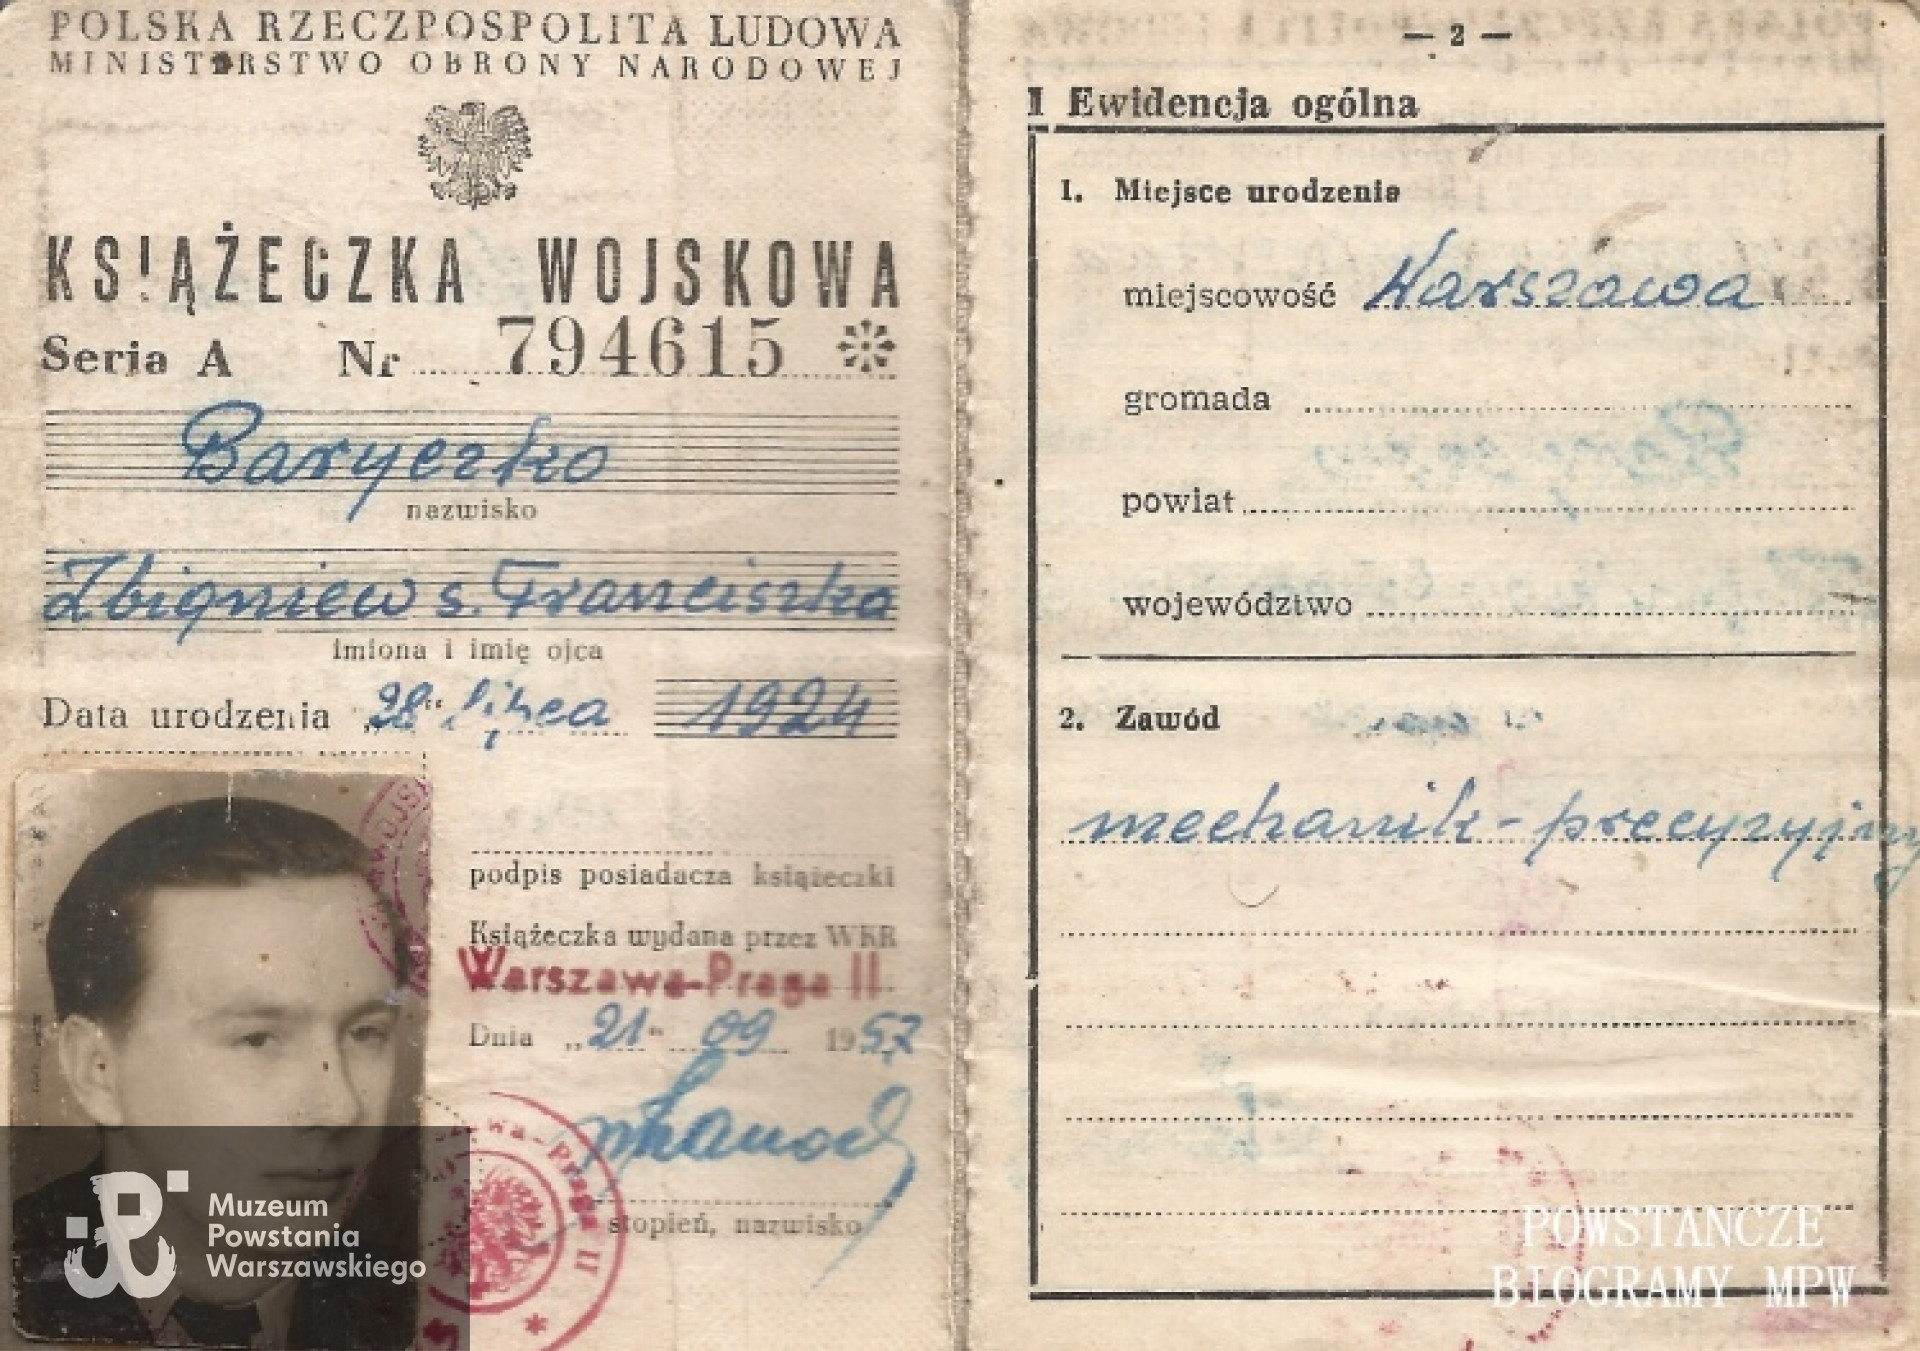 POLSKA RZECZPOSPOLITA LUDOWA
MINISTERSTWO OBRONY NARODOWEJ
KSIĄŻECZKA WOJSKOWA
Seria A Nr 794615
Baryczko
nazwisko
Zbigniew s. Franciszka
imiona i imię ojca
Data urodzenia „28“ lipca 1924
podpis posiadacza książeczki
Książeczka wydana przez WKR
Warszawa-Praga II
Dnia „21“ 09 1957
stopień, nazwisko
Muzeum
Powstania
Warszawskiego
— 2 —
I Ewidencja ogólna
1. Miejsce urodzenia
miejscowość Warszawa
gromada
powiat
województwo
2. Zawód
mechanik-precyzyjny
POWSTAŃCZE
BIOGRAMY MPW